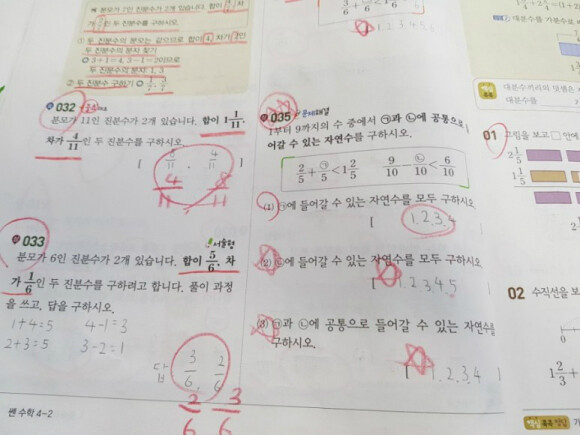 분모가 7인 진분수가 2개 있습니다. 합이
인 두 진분수를 구하시오.
① 두 진분수의 분모는 같으므로 합이 4, 차가 2인
두 진분수의 분자 찾기
3+1=4, 3-1=2이므로
두 진분수의 분자: 1, 3
② 두 진분수 구하기
032
분모가 11인 진분수가 2개 있습니다. 합이 1 1/11,
차가 4/11인 두 진분수를 구하시오.
[ 4/11
4/11 8/11
033 서술형
분모가 6인 진분수가 2개 있습니다. 합이 5/6, 차
가 1/6인 두 진분수를 구하려고 합니다. 풀이 과정
을 쓰고, 답을 구하시오.
1+4=5 4-1=3
2+3=5 3-2=1
답 3/6, 2/6
2/6 3/6
쎈 수학 4-2
1 2 3 4 5
035
1부터 9까지의 수 중에서 ㉠과 ㉡에 공통으로
어갈 수 있는 자연수를 구하시오.
2/5+㉠/5<1 2/5 9/10 ㉡/10<6/10
(1) ㉠에 들어갈 수 있는 자연수를 모두 구하시오.
[ 1, 2, 3, 4
(2) ㉡에 들어갈 수 있는 자연수를 모두 구하시오.
[ 1, 2, 3, 4, 5 ]
(3) ㉠과 ㉡에 공통으로 들어갈 수 있는 자연수를
구하시오.
[ 1, 2, 3, 4 ]
대분수를 가분수로
대분수끼리의 덧셈은
대분수를
01 그림을 보고 □ 안에
2 1/5
1 1/5
02 수직선을 보
0
1 2/3 +